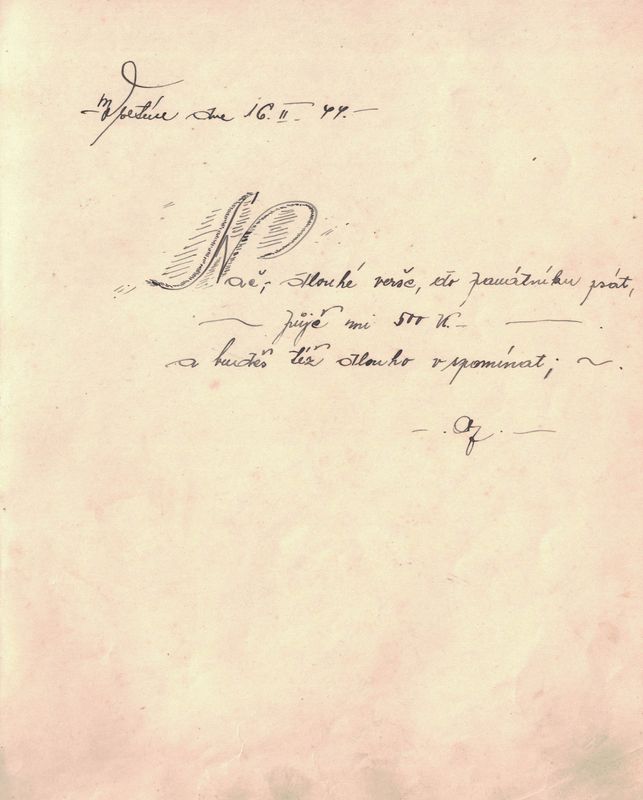 dne 16. II. 44. —
Nač, dlouhé verše, do památníku psát,
— půjč mi 500 K. — — .
a budeš též dlouho vspomínat; ~ .